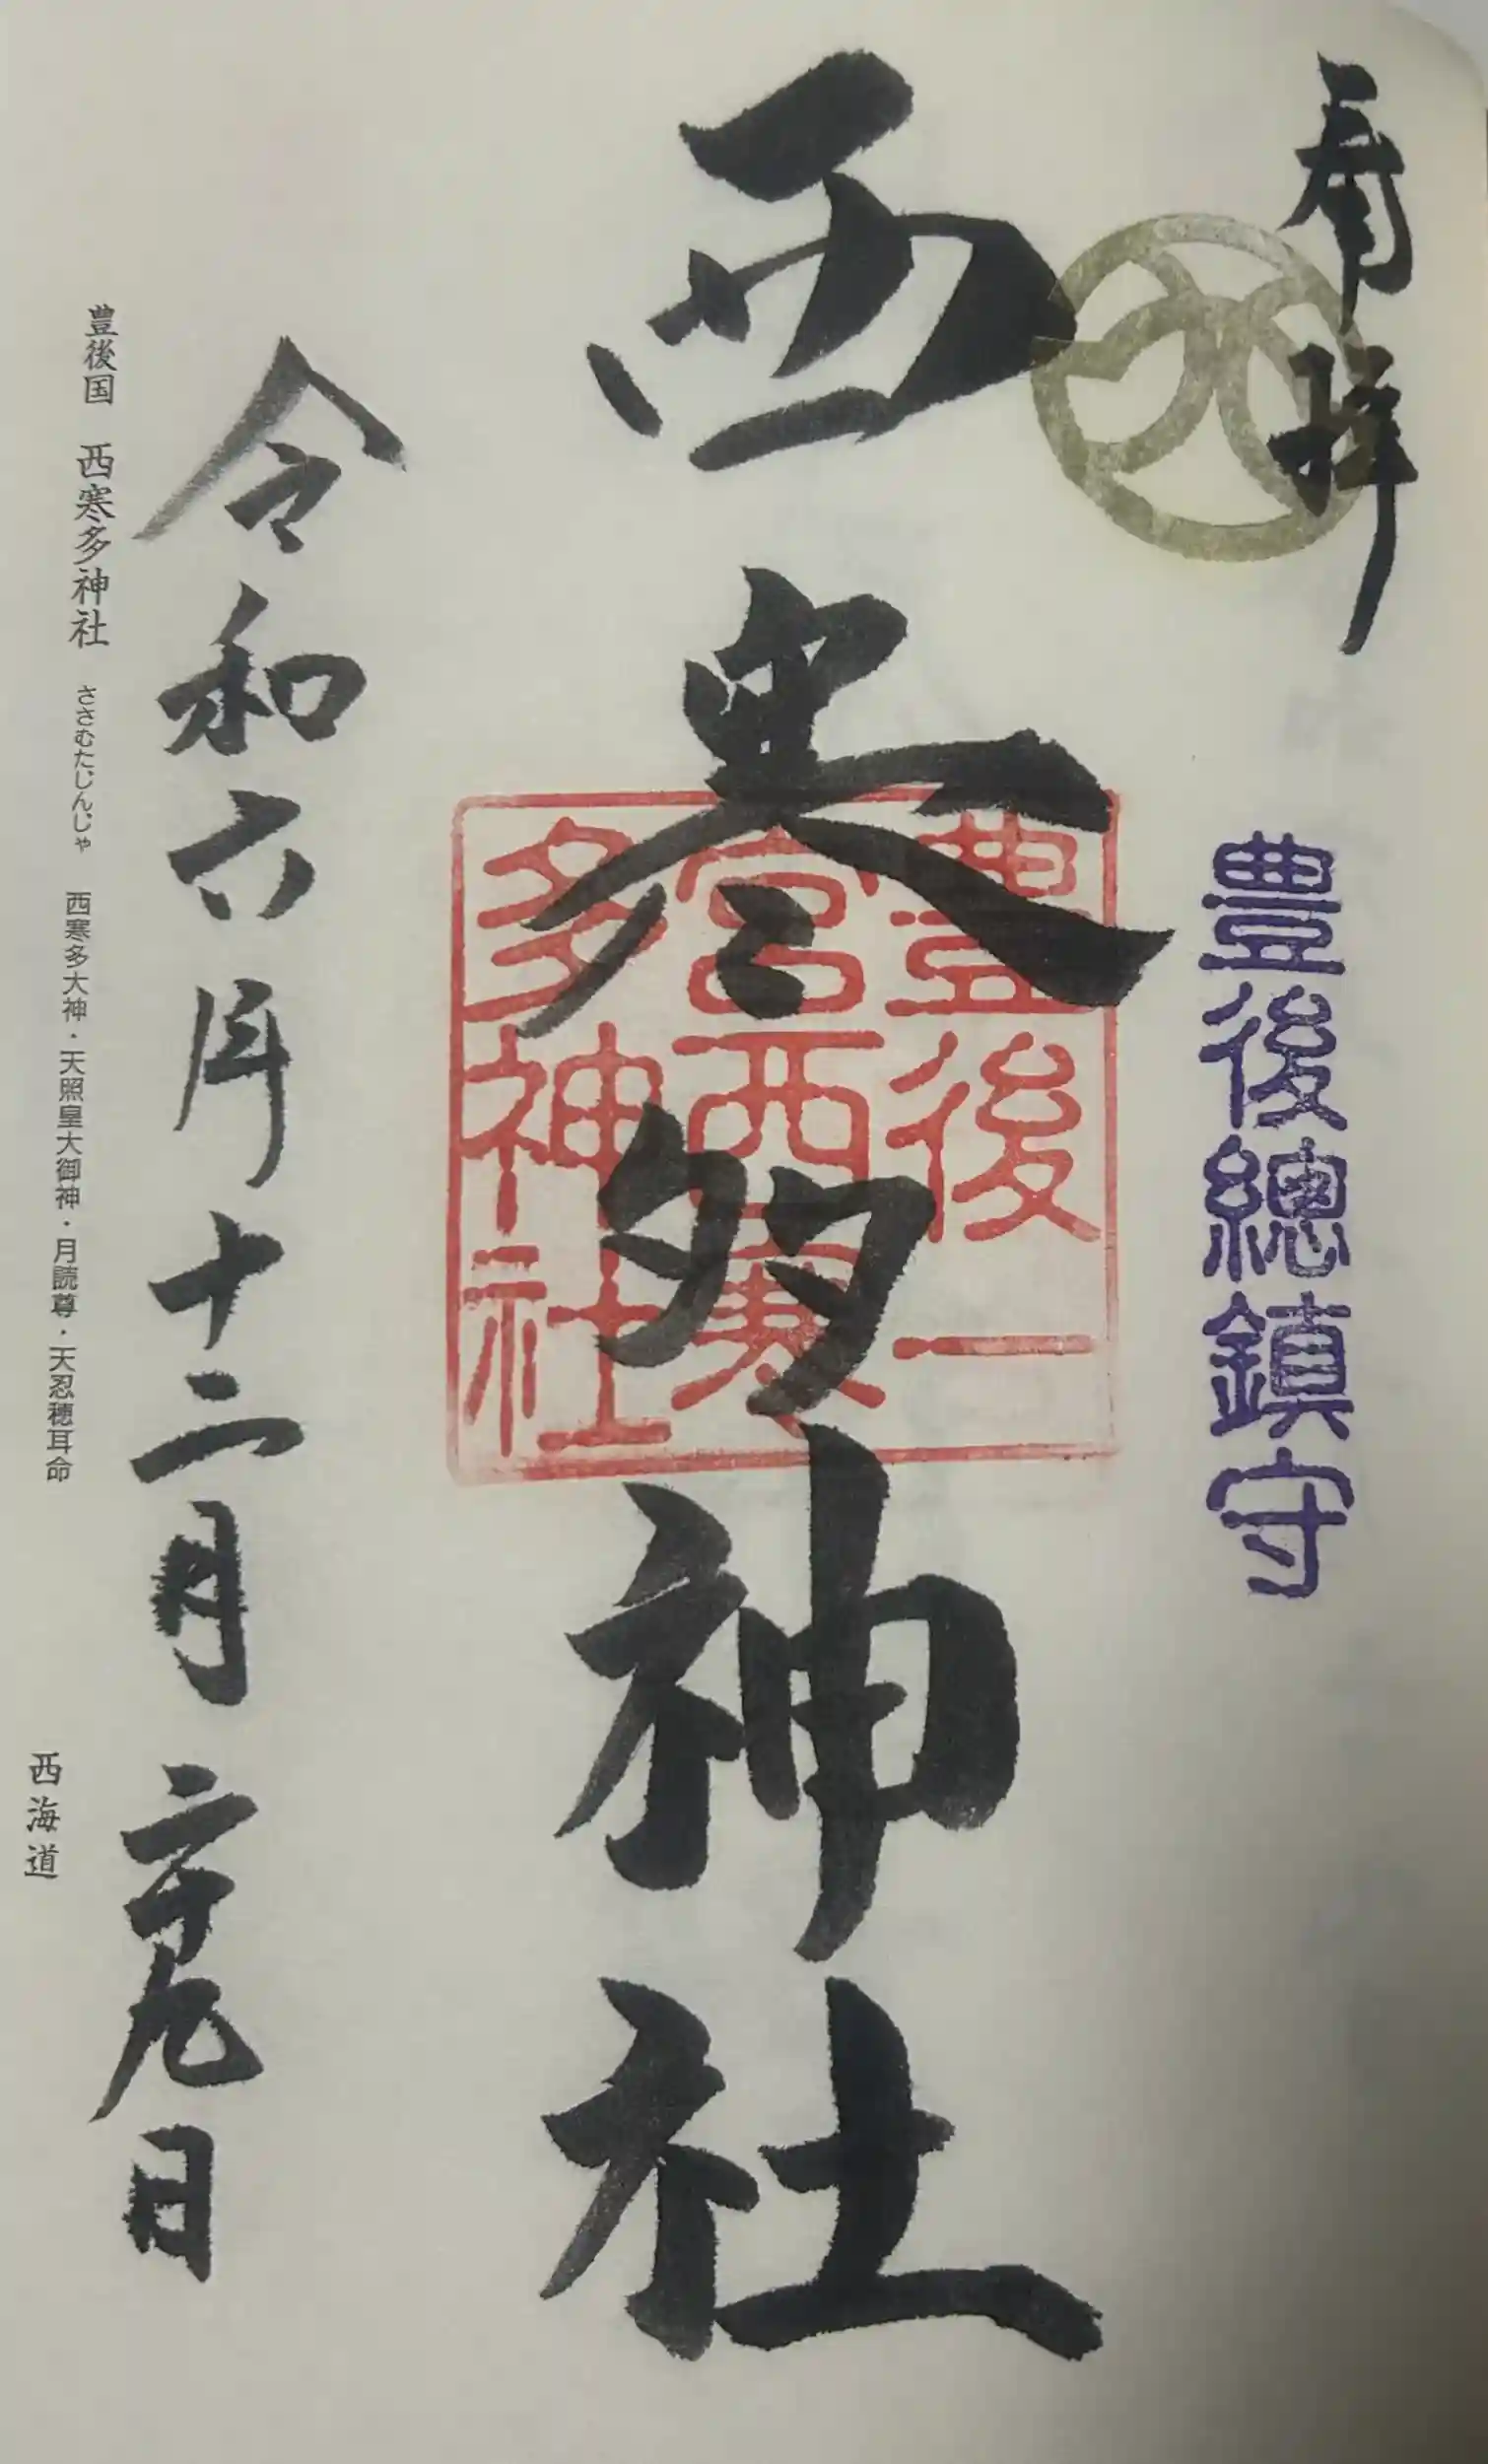 奉拝
豊後總鎮守
西寒多神社
豊後一
宮西寒
多神社
令和六年十二月二十九日
豊後国 西寒多神社 ささむたじんじゃ 西寒多大神・天照皇大御神・月読尊・天忍穂耳命
西海道